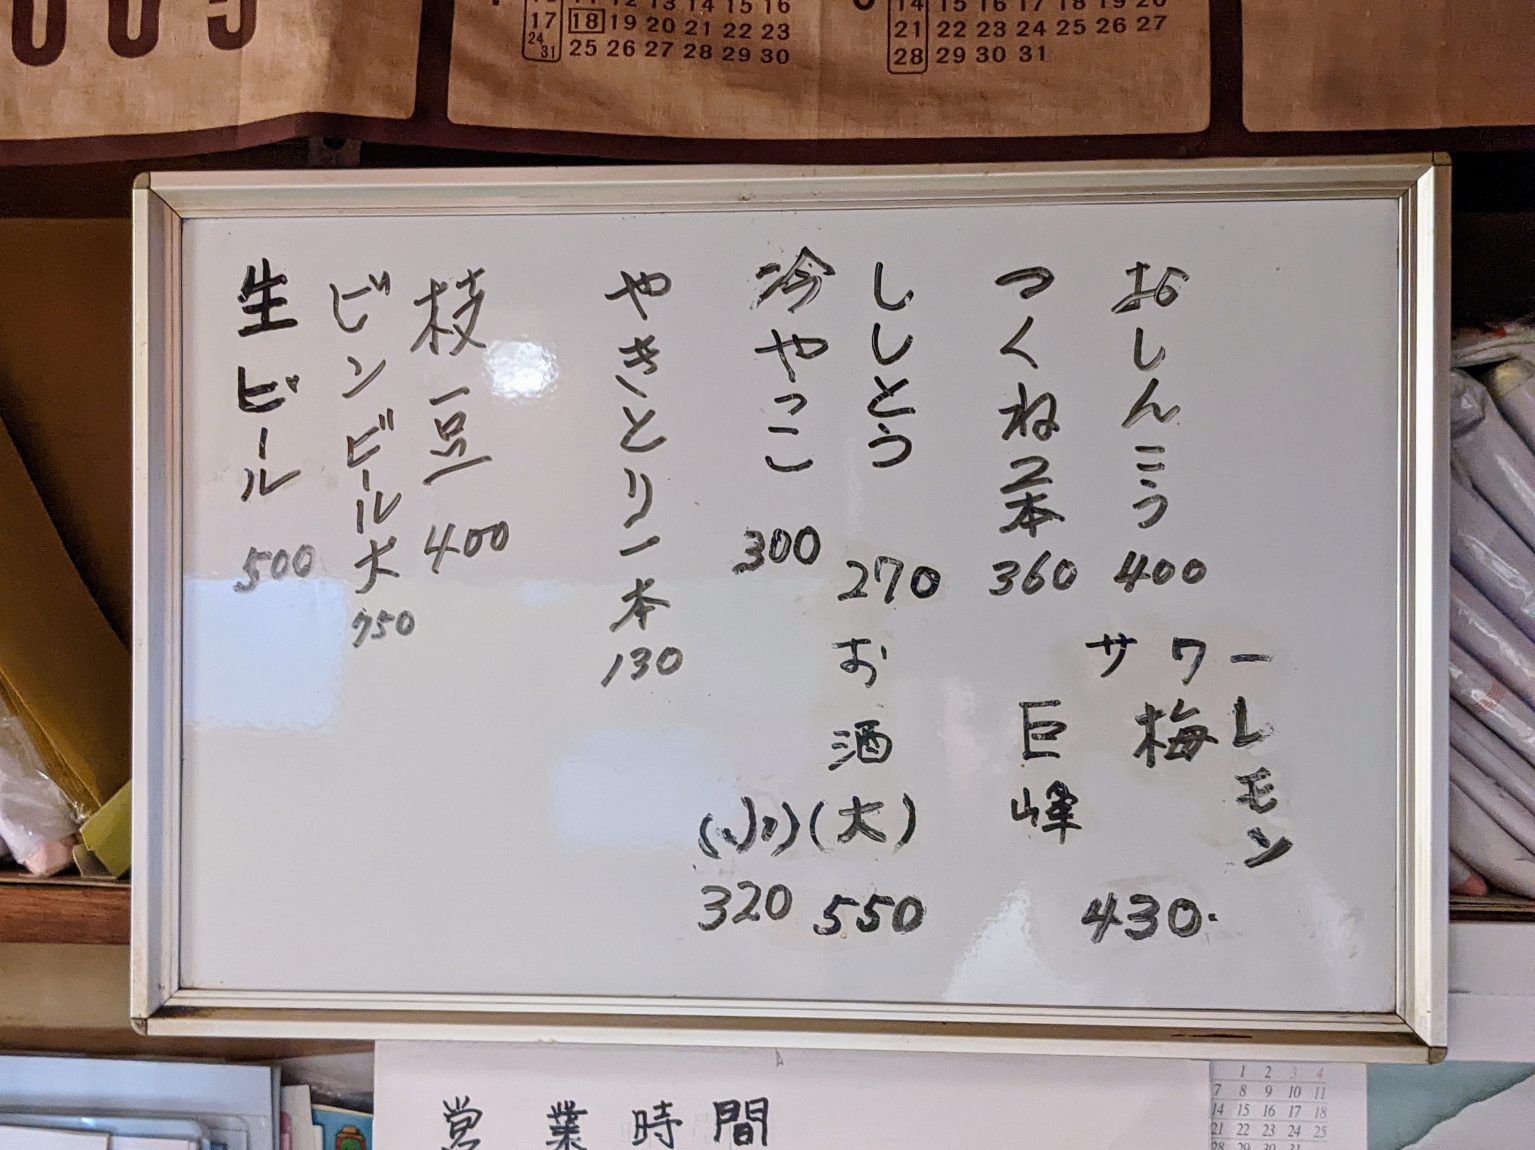 17 18 19 20 21 22 23
24/31 25 26 27 28 29 30
14 15 16 17 18 19 20
21 22 23 24 25 26 27
28 29 30 31
おしんこう 400
つくね2本 360
ししとう 270
冷やっこ 300
やきとり一本 130
枝豆 400
ビンビール大 750
生ビール 500
サワー
レモン
梅
巨峰
430.
お酒
(大) 550
(小) 320
営業時間
1 2 3 4
7 8 9 10 11
14 15 16 17 18
21 22 23 24 25